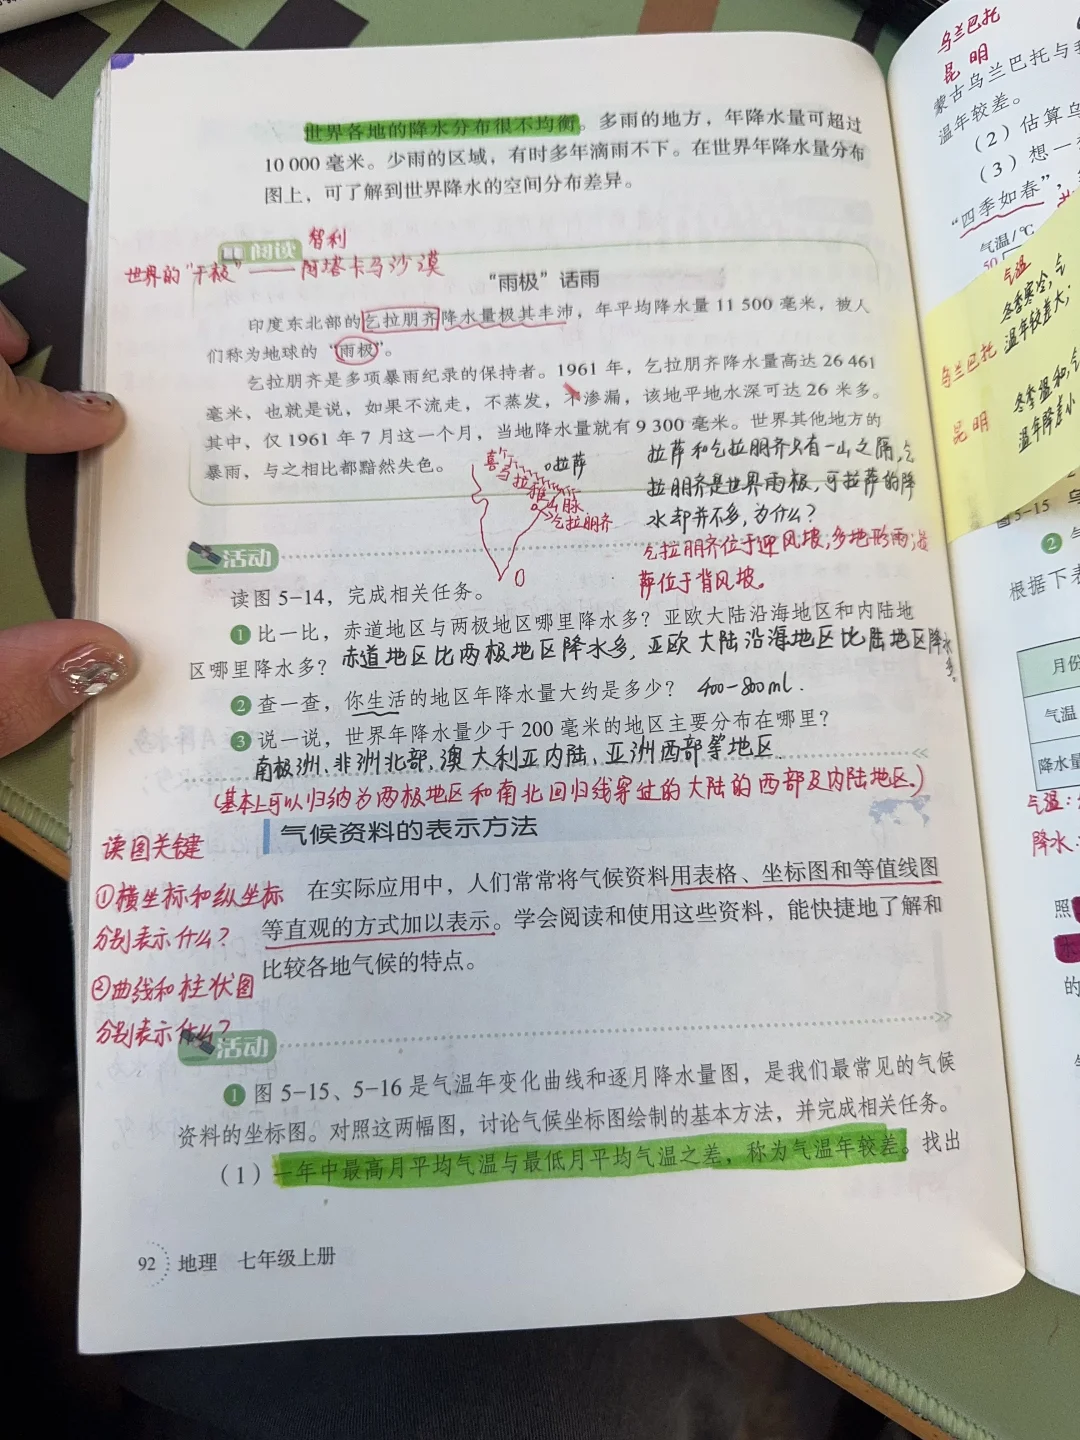 世界各地的降水分布很不均衡。多雨的地方，年降水量可超过
10 000 毫米。少雨的区域，有时多年滴雨不下。在世界年降水量分布
图上，可了解到世界降水的空间分布差异。
阅读
智利
世界的“干极”——阿塔卡马沙漠
“雨极”话雨
印度东北部的乞拉朋齐降水量极其丰沛，年平均降水量 11 500 毫米，被人
们称为地球的“雨极”。
乞拉朋齐是多项暴雨纪录的保持者。1961 年，乞拉朋齐降水量高达 26 461
毫米，也就是说，如果不流走，不蒸发，不渗漏，该地平地水深可达 26 米多。
其中，仅 1961 年 7 月这一个月，当地降水量就有 9 300 毫米。世界其他地方的
暴雨，与之相比都黯然失色。
喜马拉雅山脉
拉萨
乞拉朋齐
拉萨和乞拉朋齐只有一山之隔，乞
拉朋齐是世界雨极，可拉萨的降
水却并不多，为什么？
乞拉朋齐位于迎风坡，多地形雨；拉
萨位于背风坡。
活动
读图 5-14，完成相关任务。
1 比一比，赤道地区与两极地区哪里降水多？亚欧大陆沿海地区和内陆地
区哪里降水多？赤道地区比两极地区降水多，亚欧大陆沿海地区比陆地区降水
多。
2 查一查，你生活的地区年降水量大约是多少？ 400-800ml.
3 说一说，世界年降水量少于 200 毫米的地区主要分布在哪里？
南极洲、非洲北部、澳大利亚内陆、亚洲西部等地区.
(基本上可以归纳为两极地区和南北回归线穿过的大陆的西部及内陆地区.)
气候资料的表示方法
读图关键
①横坐标和纵坐标
分别表示什么？
②曲线和柱状图
分别表示什么？
在实际应用中，人们常常将气候资料用表格、坐标图和等值线图
等直观的方式加以表示。学会阅读和使用这些资料，能快捷地了解和
比较各地气候的特点。
活动
1 图 5-15、5-16 是气温年变化曲线和逐月降水量图，是我们最常见的气候
资料的坐标图。对照这两幅图，讨论气候坐标图绘制的基本方法，并完成相关任务。
（1）一年中最高月平均气温与最低月平均气温之差，称为气温年较差。找出
92 地理 七年级上册
乌兰巴托
昆明
蒙古乌兰巴托与
温年较差。
（2）估算乌
（3）想一
“四季如春”，
气温/℃
气温
冬季寒冷，气
温年较差大；
乌兰巴托
冬季温和，气
温年降差小
昆明
图5-15
2
根据下表
月份
气温
降水量
气温：
降水：
照
的